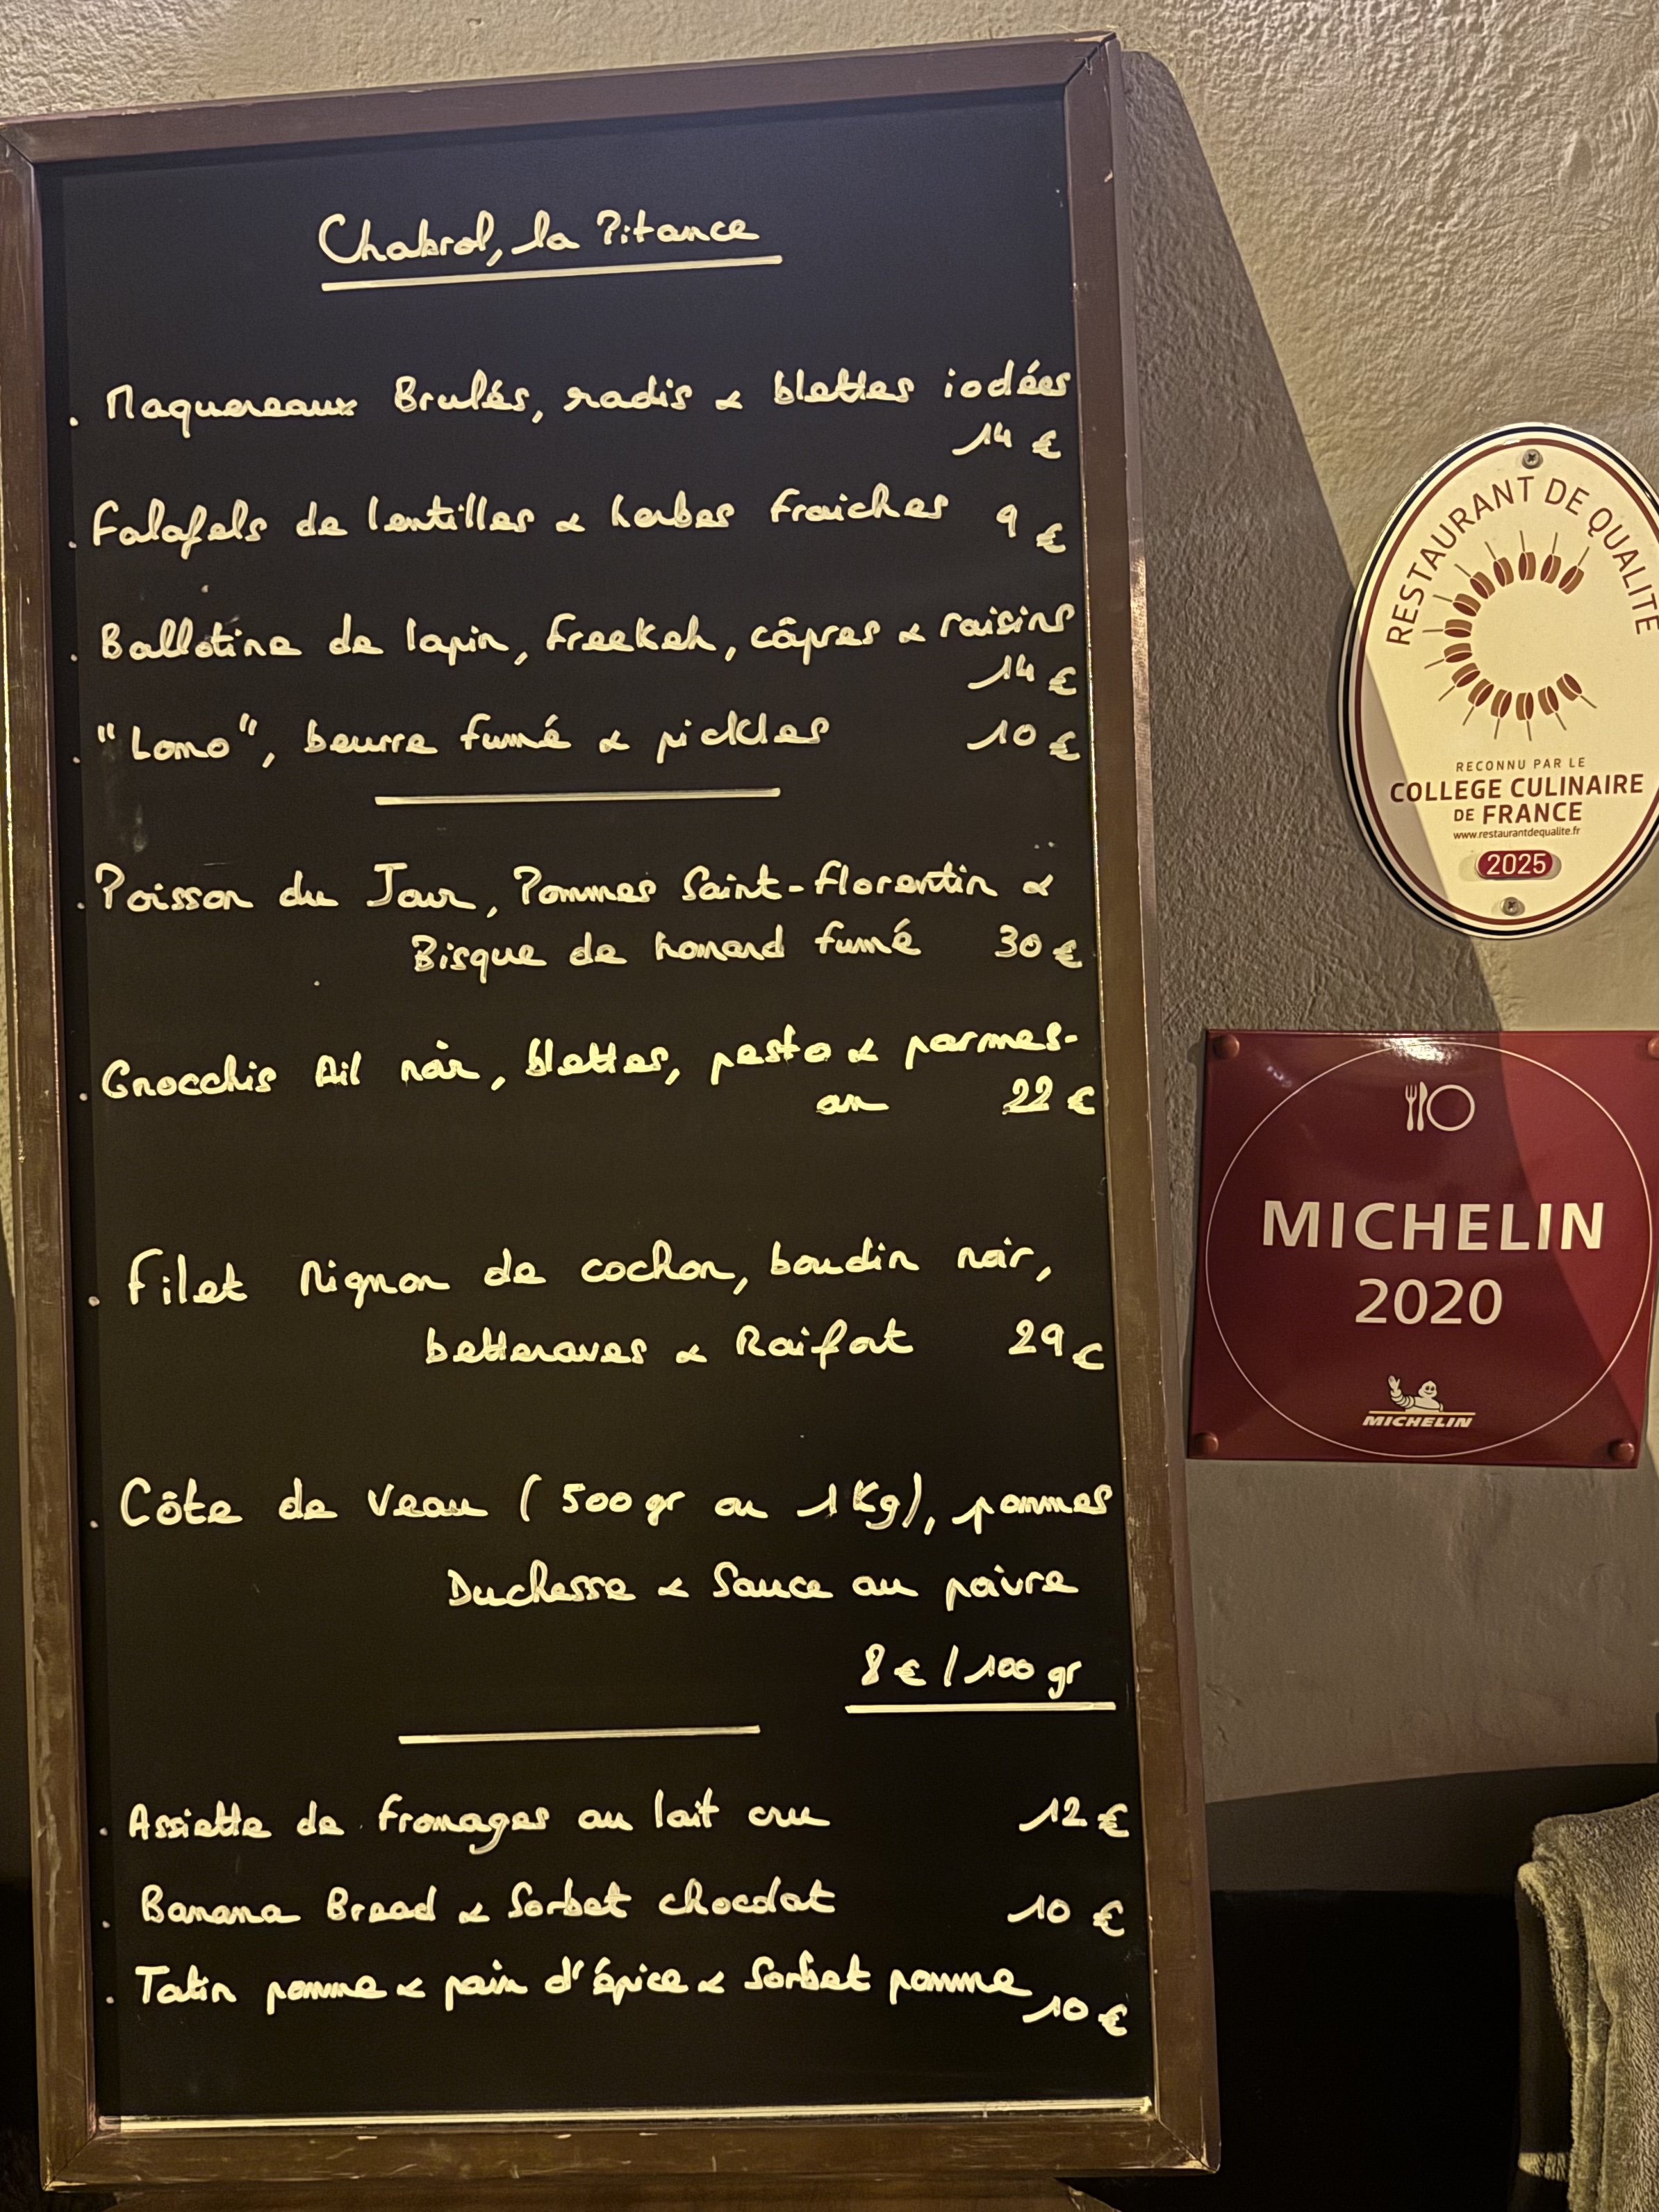 Chabrol, la Pitance
. Maquereaux Brulés, radis & blettes iodées
14 €
. Falafels de lentilles & herbes fraiches 9 €
. Ballotine de lapin, Freekeh, câpres & raisins
14 €
. "Lomo", beurre fumé & pickles 10 €
. Poisson du Jour, Pommes Saint-Florentin &
Bisque de homard fumé 30 €
. Gnocchis Ail noir, blettes, pesto & parmes-
an 22 €
. Filet Mignon de cochon, boudin noir,
betteraves & Raifort 29 €
. Côte de Veau (500 gr ou 1 Kg), pommes
Duchesse & Sauce au poivre
8 € / 100 gr
. Assiette de Fromages au lait cru 12 €
. Banana Bread & Sorbet chocolat 10 €
. Tatin pomme & pain d'épice & Sorbet pomme
10 €
RESTAURANT DE QUALITÉ
RECONNU PAR LE
COLLEGE CULINAIRE
DE FRANCE
www.restaurantdequalite.fr
2025
MICHELIN
2020
MICHELIN